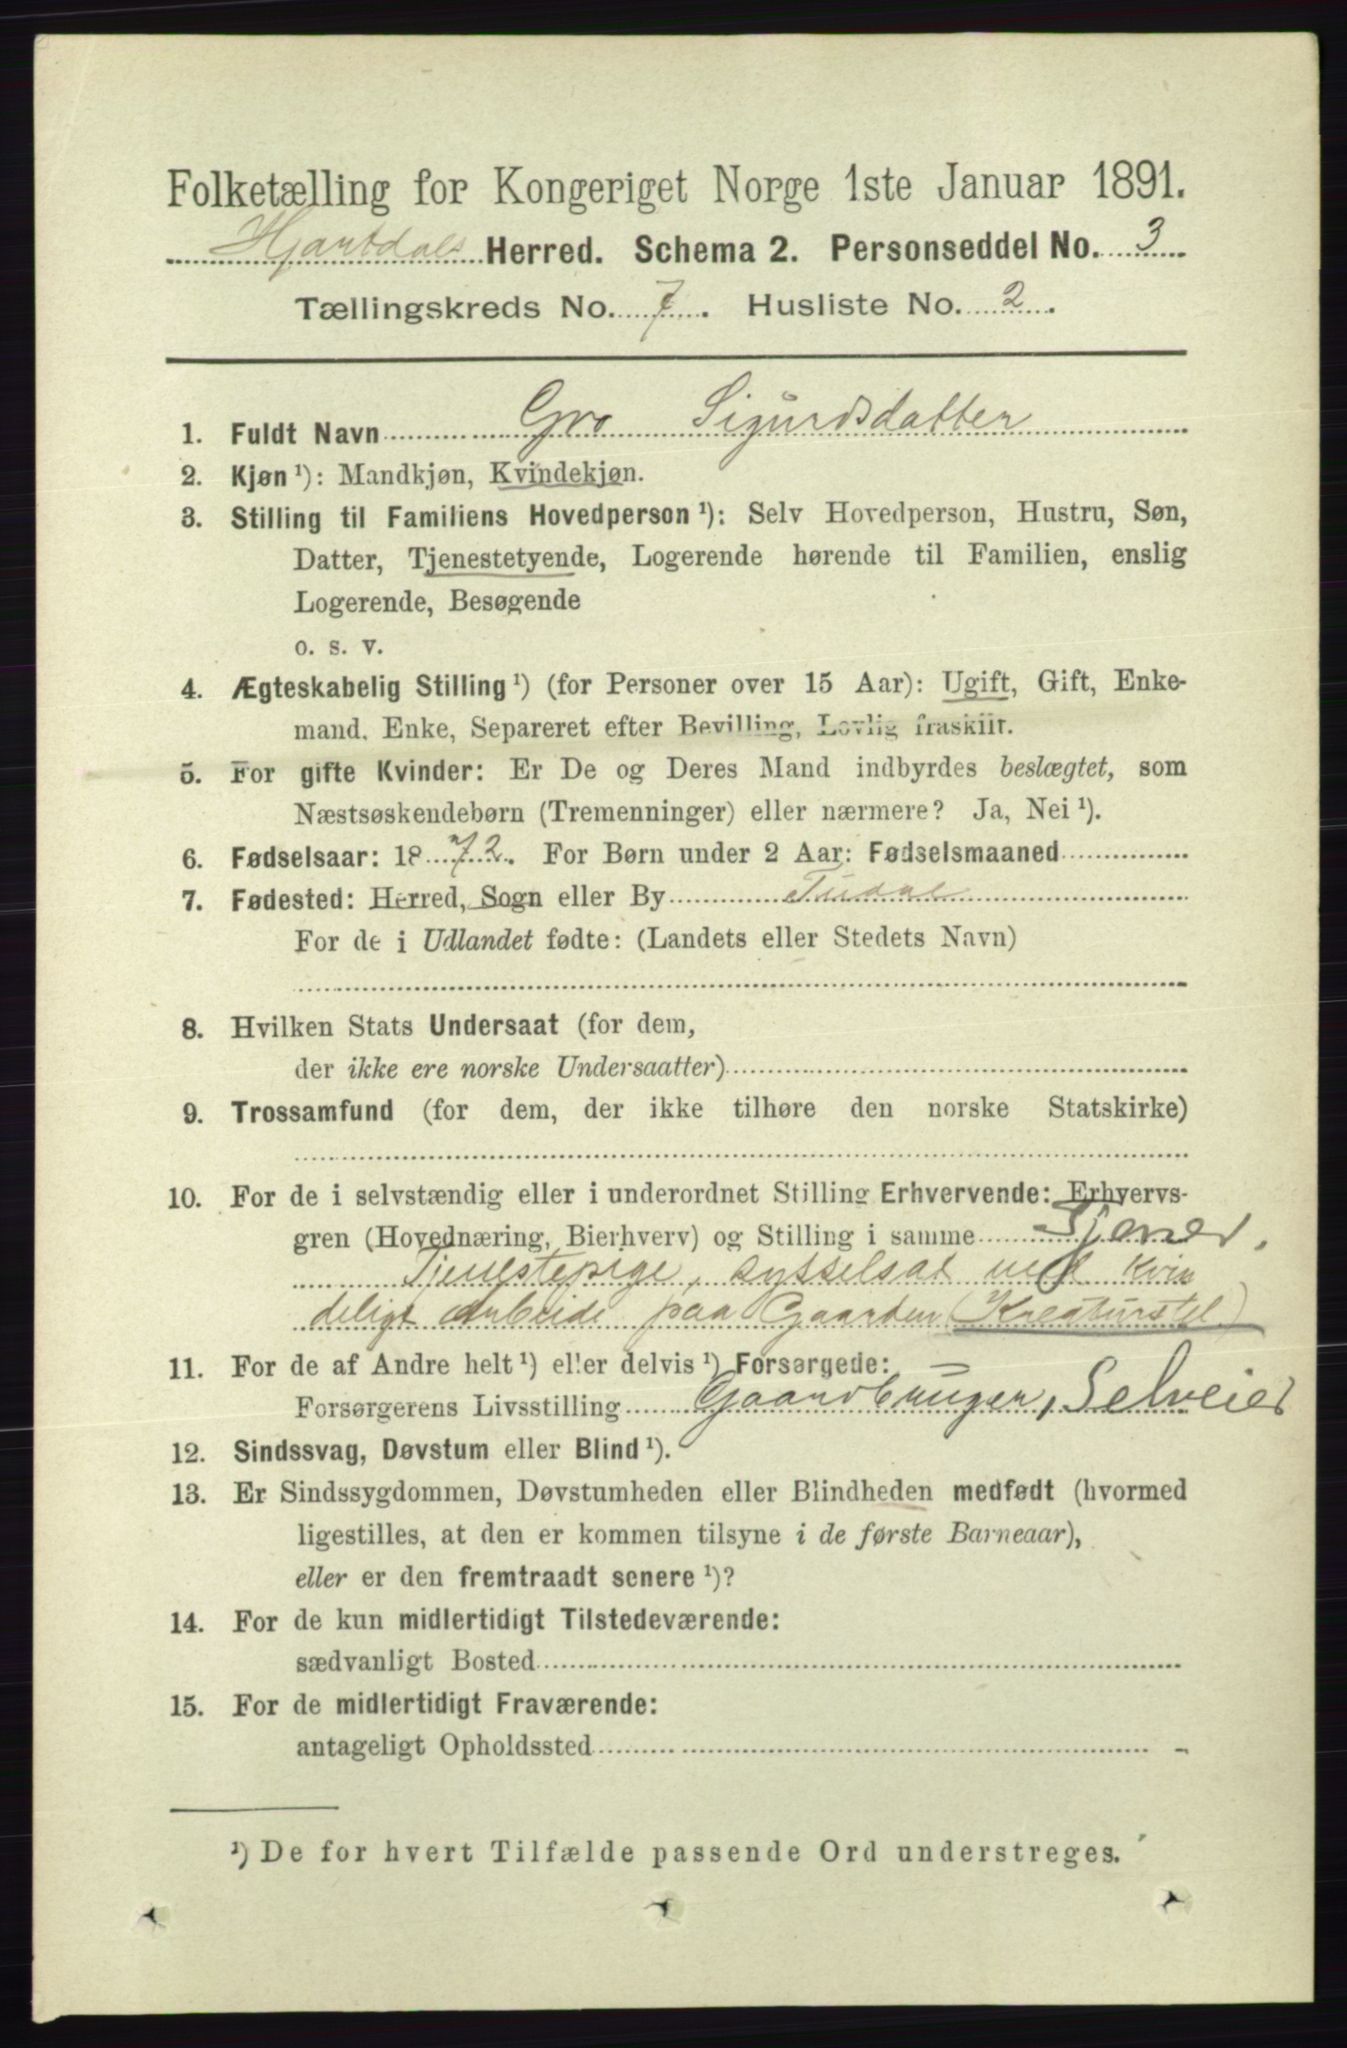 Folketælling for Kongeriget Norge 1ste Januar 1891.
Hjartdals Herred. Schema 2. Personseddel No. 3
Tællingskreds No. 7. Husliste No. 2.
1. Fuldt Navn Gro Sigurdsdatter
2. Kjøn ¹): Mandkjøn, Kvindekjøn.
3. Stilling til Familiens Hovedperson ¹): Selv Hovedperson, Hustru, Søn,
Datter, Tjenestetyende, Logerende hørende til Familien, enslig
Logerende, Besøgende
o. s. v.
4. Ægteskabelig Stilling ¹) (for Personer over 15 Aar): Ugift, Gift, Enke-
mand, Enke, Separeret efter Bevilling, Lovlig fraskilt.
5. For gifte Kvinder: Er De og Deres Mand indbyrdes beslægtet, som
Næstsøskendebørn (Tremenninger) eller nærmere? Ja, Nei ¹).
6. Fødselsaar: 1872. For Børn under 2 Aar: Fødselsmaaned
7. Fødested: Herred, Sogn eller By Tudal
For de i Udlandet fødte: (Landets eller Stedets Navn)
8. Hvilken Stats Undersaat (for dem,
der ikke ere norske Undersaatter)
9. Trossamfund (for dem, der ikke tilhøre den norske Statskirke)
10. For de i selvstændig eller i underordnet Stilling Erhvervende: Erhvervs-
gren (Hovednæring, Bierhverv) og Stilling i samme Tjener.
Tjenestepige, sysselsat med Kvin
deligt Arbeide paa Gaarden (Kreaturstel)
11. For de af Andre helt ¹) eller delvis ¹) Forsørgede:
Forsørgerens Livsstilling Gaardbruger, Selveier
12. Sindssvag, Døvstum eller Blind ¹).
13. Er Sindssygdommen, Døvstumheden eller Blindheden medfødt (hvormed
ligestilles, at den er kommen tilsyne i de første Barneaar),
eller er den fremtraadt senere ¹)?
14. For de kun midlertidigt Tilstedeværende:
sædvanligt Bosted
15. For de midlertidigt Fraværende:
antageligt Opholdssted
¹) De for hvert Tilfælde passende Ord understreges.